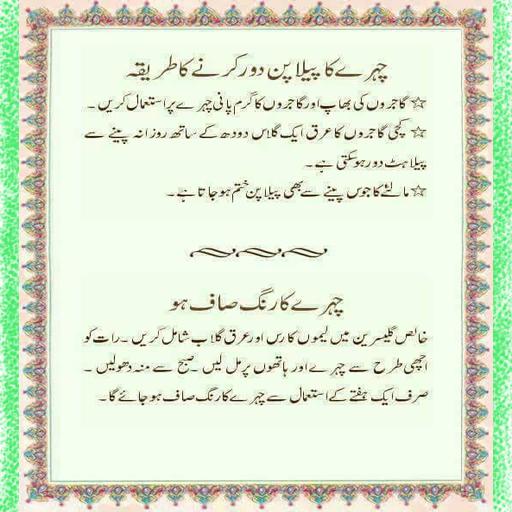 چہرے کا پیلا پن دور کرنے کا طریقہ
☆ گاجروں کی بھاپ اور گاجروں کا گرم پانی چہرے پر استعمال کریں۔
☆ کچی گاجروں کا عرق ایک گلاس دودھ کے ساتھ روزانہ پینے سے
پیلاہٹ دور ہو سکتی ہے۔
☆ مالٹے کا جوس پینے سے بھی پیلا پن ختم ہو جاتا ہے۔
چہرے کا رنگ صاف ہو
خالص گلیسرین میں لیموں کا رس اور عرق گلاب شامل کریں۔ رات کو
اچھی طرح سے چہرے اور ہاتھوں پر مل لیں۔ صبح سے منہ دھولیں۔
صرف ایک ہفتے کے استعمال سے چہرے کا رنگ صاف ہو جائے گا۔